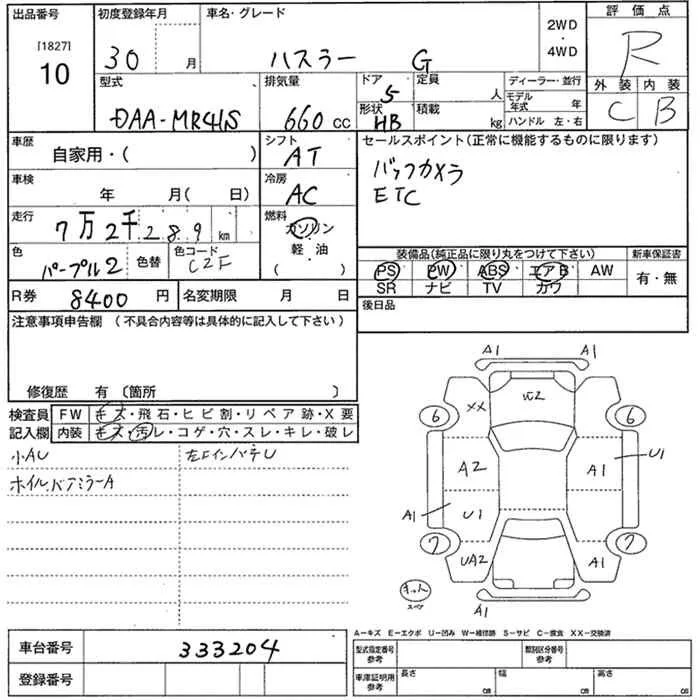 出品番号
[1827]
10
初度登録年月
30 月
車名・グレード
ハスラー G
2WD
・
4WD
評価点
R
外装 内装
C B
型式
DAA-MR41S
排気量
660 cc
ドア
5
形状
HB
定員
人
積載
kg
ディーラー・並行
モデル年式 年
ハンドル 左・右
車歴
自家用・( )
シフト
AT
セールスポイント(正常に機能するものに限ります)
バックカメラ
ETC
車検
年 月( 日)
冷房
AC
走行
7万2千289 km
燃料
ガソリン
・
軽 油
( )
色
パープル2
色替
色コード
C2F
装備品(純正品に限り丸をつけて下さい)
PS PW ABS エアB AW
SR ナビ TV カワ
新車保証書
有・無
R券 8400 円
名変期限 月 日
後日品
注意事項申告欄 (不具合内容等は具体的に記入して下さい)
修復歴 有 〔箇所 〕
検査員
記入欄
FW キズ・飛石・ヒビ割・リペア跡・X要
内装 キズ・汚レ・コゲ・穴・スレ・キレ・破レ
小AU
A1 A1
XX
6 6
A2 A1
U1
A1 U1
7 7
UA2 A1
スペア
A1
A-キズ E-エクボ U-凹み W-補修跡 S-サビ C-腐食 XX-交換済
車台番号 333204
登録番号
型式指定番号
参考
類別区分番号
参考
車庫証明用
参考
長さ cm
幅 cm
高さ cm